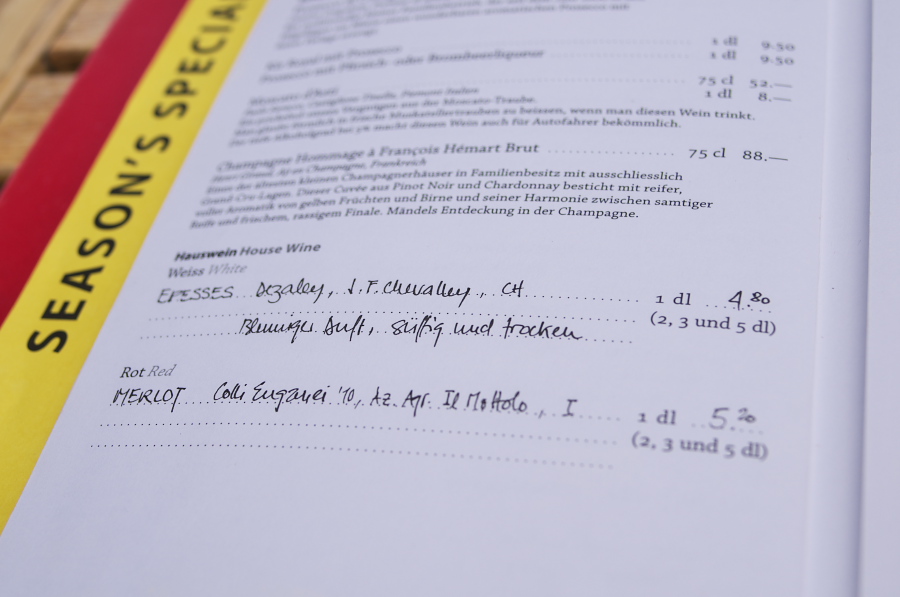 SEASON'S SPECIA
1 dl 9.50
1 dl 9.50
75 cl 52.—
1 dl 8.—
zu beissen, wenn man diesen Wein trinkt.
macht diesen Wein auch für Autofahrer bekömmlich.
Champagne Hommage à François Hémart Brut 75 cl 88.—
Champagne, Frankreich
Eines der ältesten kleinen Champagnerhäuser in Familienbesitz mit ausschliesslich
Grand-Cru-Lagen. Dieser Cuvée aus Pinot Noir und Chardonnay besticht mit reifer,
voller Aromatik von gelben Früchten und Birne und seiner Harmonie zwischen samtiger
Reife und frischem, rassigem Finale. Mändels Entdeckung in der Champagne.
Hauswein House Wine
Weiss White
EPESSES Dezaley, J.F. Chevalley, CH 1 dl 4.80
(2, 3 und 5 dl)
Blumiger Duft, süffig und trocken
Rot Red
MERLOT Colli Euganei '10, Az. Agr. Il Mottolo, I 1 dl 5.20
(2, 3 und 5 dl)